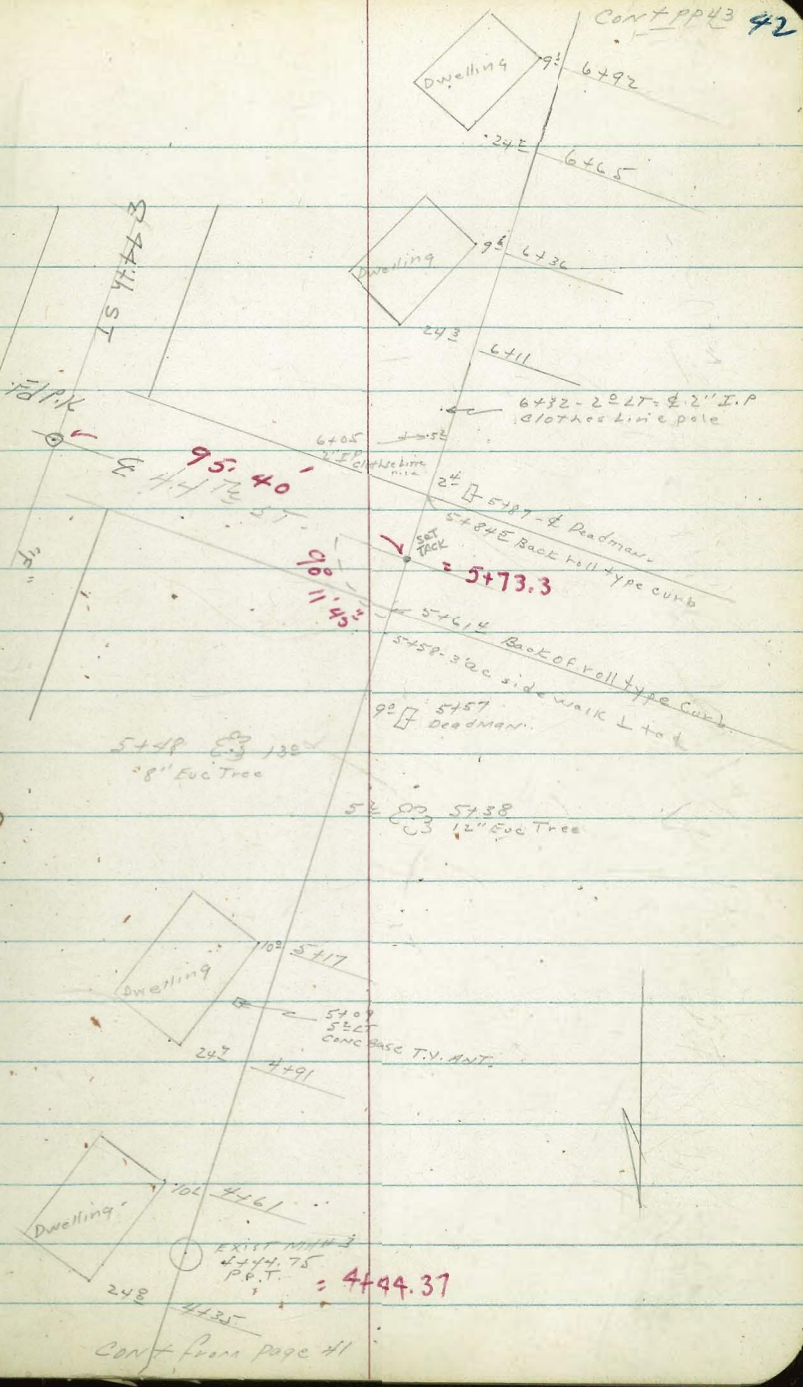 Cont PP43 42
Dwelling 6+92
6+65
44th ST
Dwelling 6+36
6+11
Fd P.K
6+32 - 2⁰ LT = ℄ 2" I.P
Clothes Line pole
6+05
2" I.P
95.40'
44 Th ST.
2⁴ 5+87 - ℄ Deadman.
5+84⁵ Back roll type curb
SET
TACK
= 5+73.3
90° 11' 45"
5+61.4 Back of roll type Curb
5+58 - 3' ac side walk ⊥ to ℄
9⁰ 5+57
Deadman
5+48 13⁰
8" Euc Tree
5+38
12" Euc Tree
Dwelling 5+17
5+09
5² LT
Conc Base T.V. ANT.
4+91
Dwelling 4+61
EXIST MH# 3
4+44.75
= 4+44.37
24⁸ 4+35
Cont from page 41